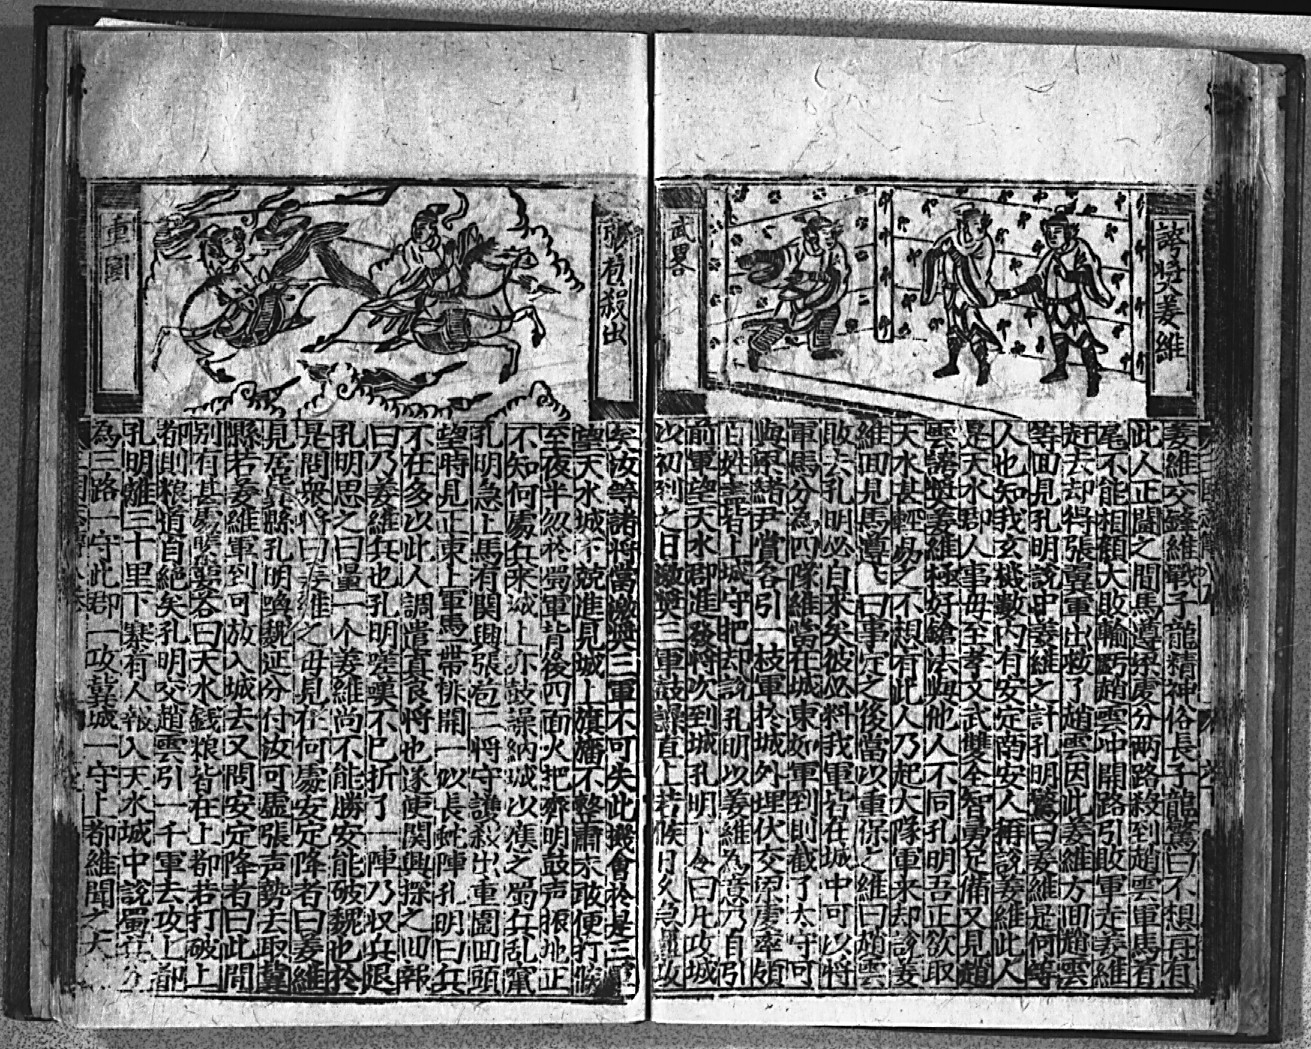 誇奬姜維
武畧
姜維交鋒維戰子龍精神倍長子龍驚曰不想再有
此人正鬪之間馬遵梁虔分两路殺到趙雲軍馬首
尾不能相顧大敗輸虧趙雲冲開路引敗軍走姜維
赶去却得張翼軍出救了趙雲因此姜維方回趙雲
等回見孔明說中姜維之計孔明驚曰姜維是何等
人也知我玄機數内有安定南安人稱說姜維此人
是天水郡人事母至孝文武雙全智勇足備又見趙
雲誇奬姜維極好鎗法與他人不同孔明吾正欲取
天水甚輕易之不想有此人乃起大隊軍來却說姜
維回見馬遵曰事定之後當以重保之維曰趙雲
敗去孔明必自來矣彼必料我軍皆在城中可以將
軍馬分為四隊維當在城東如軍到則截了太守可
與梁緒尹賞各引一枝軍於城外埋伏交梁虔率領
百姓盡者上城守把却說孔明以姜維為意乃自引
前軍望天水郡進發將次到城孔明卜令曰凡攻城
以初到之日激奬三軍鼓譟直上若候日久急難攻
張苞殺出
重圍
矣汝等諸将當激與三軍不可失此機會於是三軍
望天水城下競進見城上旗旛不整肅未敢便打候
至夜半忽於蜀軍背後四面火把齊明鼓声振地正
不知何處兵來城上亦鼓譟納城以應之蜀兵乱竄
孔明急上馬有関興張苞二將守護殺出重圍回頭
望時見正東上軍馬帶排開一似長蛇陣孔明曰兵
不在多以此人調遣真良将也遂使関興探之回報
曰乃姜維兵也孔明嗟嘆不已折了一陣乃収兵退
孔明思之曰量一个姜維尚不能勝安能破魏也於
是問衆将曰姜維之母見在何處安定降者曰姜維
見居冀縣孔明喚魏延分付汝可虚張声勢去取冀
縣若姜維軍到可放入城去又問安定降者曰此間
別有甚處曉要答曰天水錢粮皆在上郡若打破上
都則粮道自絕矣孔明交趙雲引一千軍去攻上郡
孔明離三十里下寨有人報入天水城中說蜀兵分
為三路一守此郡一攻冀城一守上郡維聞之大